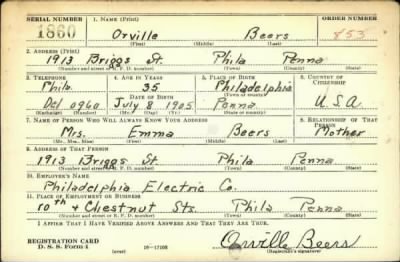 SERIAL NUMBER 1. NAME (Print) ORDER NUMBER
1860 Orville Beers 853
(First) (Middle) (Last)
2. ADDRESS (Print)
1913 Briggs St. Phila Penna
(Number and street or R. F. D. number) (Town) (County) (State)
3. TELEPHONE 4. AGE IN YEARS 5. PLACE OF BIRTH 6. COUNTRY OF CITIZENSHIP
Phila. 35 Philadelphia
DATE OF BIRTH (Town or county)
Del 0960 July 8 1905 Penna. U.S.A
(Exchange) (Number) (Mo.) (Day) (Yr.) (State or country)
7. NAME OF PERSON WHO WILL ALWAYS KNOW YOUR ADDRESS 8. RELATIONSHIP OF THAT PERSON
Mrs. Emma Beers Mother
(Mr., Mrs., Miss) (First) (Middle) (Last)
9. ADDRESS OF THAT PERSON
1913 Briggs St Phila Penna
(Number and street or R. F. D. number) (Town) (County) (State)
10. EMPLOYER'S NAME
Philadelphia Electric Co.
11. PLACE OF EMPLOYMENT OR BUSINESS
10th & Chestnut Sts. Phila Penna
(Number and street or R. F. D. number) (Town) (County) (State)
I AFFIRM THAT I HAVE VERIFIED ABOVE ANSWERS AND THAT THEY ARE TRUE.
REGISTRATION CARD Orville Beers
D. S. S. Form 1 (over) 16—17105 (Registrant's signature)